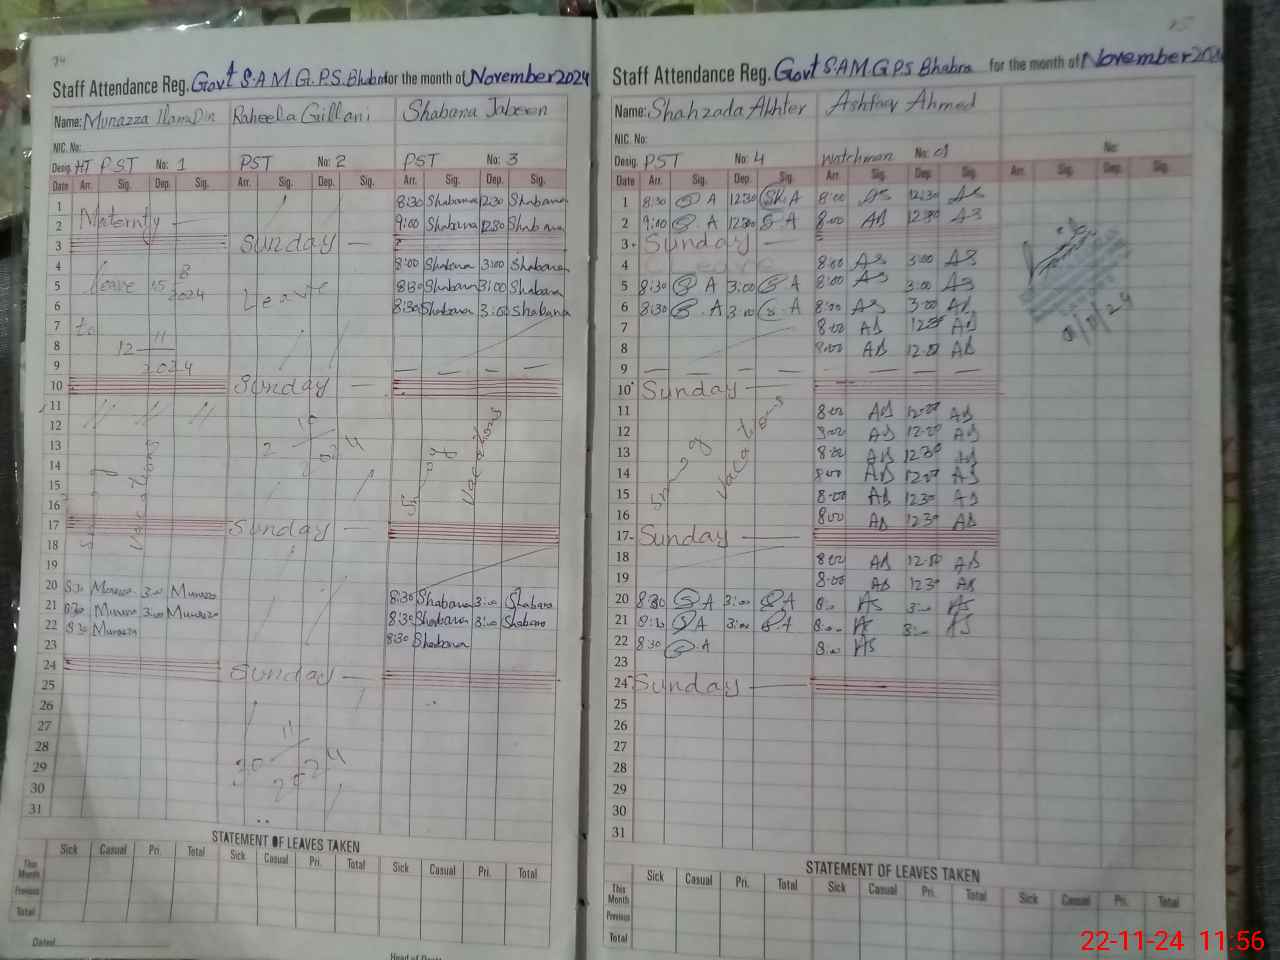 74
Staff Attendance Reg. Govt S.A.M.G.P.S. Bhabra for the month of November 2024
Name: Munazza Raheela Gillani Shabana Jabeen
NIC. No:
Desig. HT PST No: 1 PST No: 2 PST No: 3
Date Arr. Sig. Dep. Sig. Arr. Sig. Dep. Sig. Arr. Sig. Dep. Sig.
1 8:30 Shabana 12:30 Shabana
2 Maternty 9:00 Shabana 12:30 Shabana
3 Sunday
4 8 8:00 Shabana 3:00 Shabana
5 leave 15 2024 Leave 8:30 Shabana 3:00 Shabana
6 8:30 Shabana 3:00 Shabana
7 to
8 12 11
9 2024
10 Sunday
11
12
13 2 2024
14
15 Vacations Smog Vacations
16
17 Sunday
18
19
20 8:30 Munaza 3:00 Munaza 8:30 Shabana 3:00 Shabana
21 8:30 Munaza 3:00 Munaza 8:30 Shabana 3:00 Shabana
22 8:30 Munaza 8:30 Shabana
23
24 Sunday
25
26
27 11
28 30
29 2024
30
31
STATEMENT OF LEAVES TAKEN
Sick Casual Pri. Total Sick Casual Pri. Total Sick Casual Pri. Total
This Month
Previous
Total
Dated
15
Staff Attendance Reg. Govt S.A.M.G.P.S Bhabra for the month of November 2024
Name: Shahzada Akhter Ashfaq Ahmed
NIC. No:
Desig. PST No: 4 Watchman No: 01 No:
Date Arr. Sig. Dep. Sig. Arr. Sig. Dep. Sig. Arr. Sig. Dep. Sig.
1 8:30 S A 12:30 Sh. A 8:00 AS 12:30 AS
2 9:00 S. A 12:30 S A 8:00 AS 12:30 AS
3 Sunday
4 Leave 8:00 AS 3:00 AS
5 8:30 S A 3:00 S A 8:00 AS 3:00 AS
6 8:30 S. A 3:00 S. A 8:00 AS 3:00 AS
7 8:00 AS 12:30 AS
8 8:00 AS 12:30 AS
9
10 Sunday
11 8:00 AS 12:30 AS
12 8:00 AS 12:30 AS
13 8:00 AS 12:30 AS
14 Smog Vacations 8:00 AS 12:30 AS
15 8:00 AS 12:30 AS
16 8:00 AS 12:30 AS
17 Sunday
18 8:00 AS 12:30 AS
19 8:00 AS 12:30 AS
20 8:30 S A 3:00 S A 8:00 AS 3:00 AS
21 8:30 S A 3:00 S. A 8:00 AS 3:00 AS
22 8:30 S. A 8:00 AS
23
24 Sunday
25
26
27
28
29
30
31
STATEMENT OF LEAVES TAKEN
Sick Casual Pri. Total Sick Casual Pri. Total Sick Casual Pri. Total
This Month
Previous
Total
22-11-24 11:56